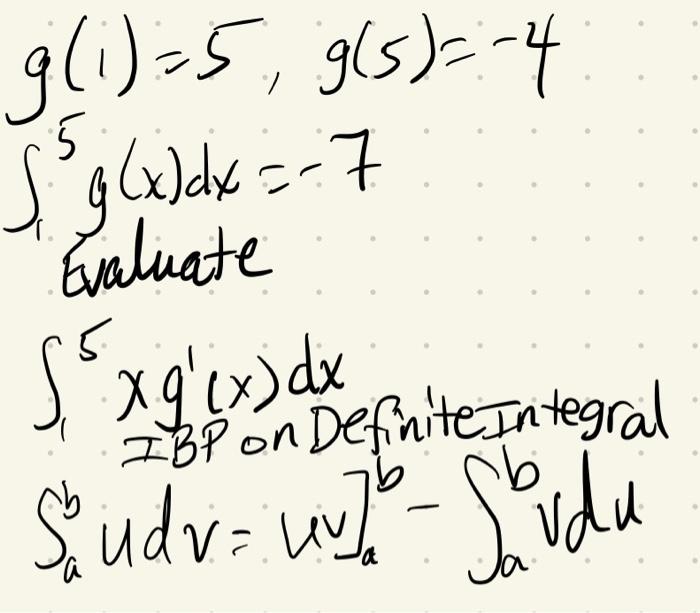 g(1)=5, g(5)=-4
∫₁⁵ g(x)dx = -7
Evaluate
∫₁⁵ xg'(x)dx
IBP on Definite Integral
∫ₐᵇ udv = uv]ₐᵇ - ∫ₐᵇ vdu